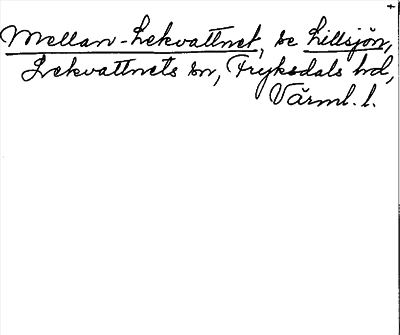 Mellan-Lekvattnet, se Lillsjön,
Lekvattnets sn, Fryksdals hd,
Värml. l.